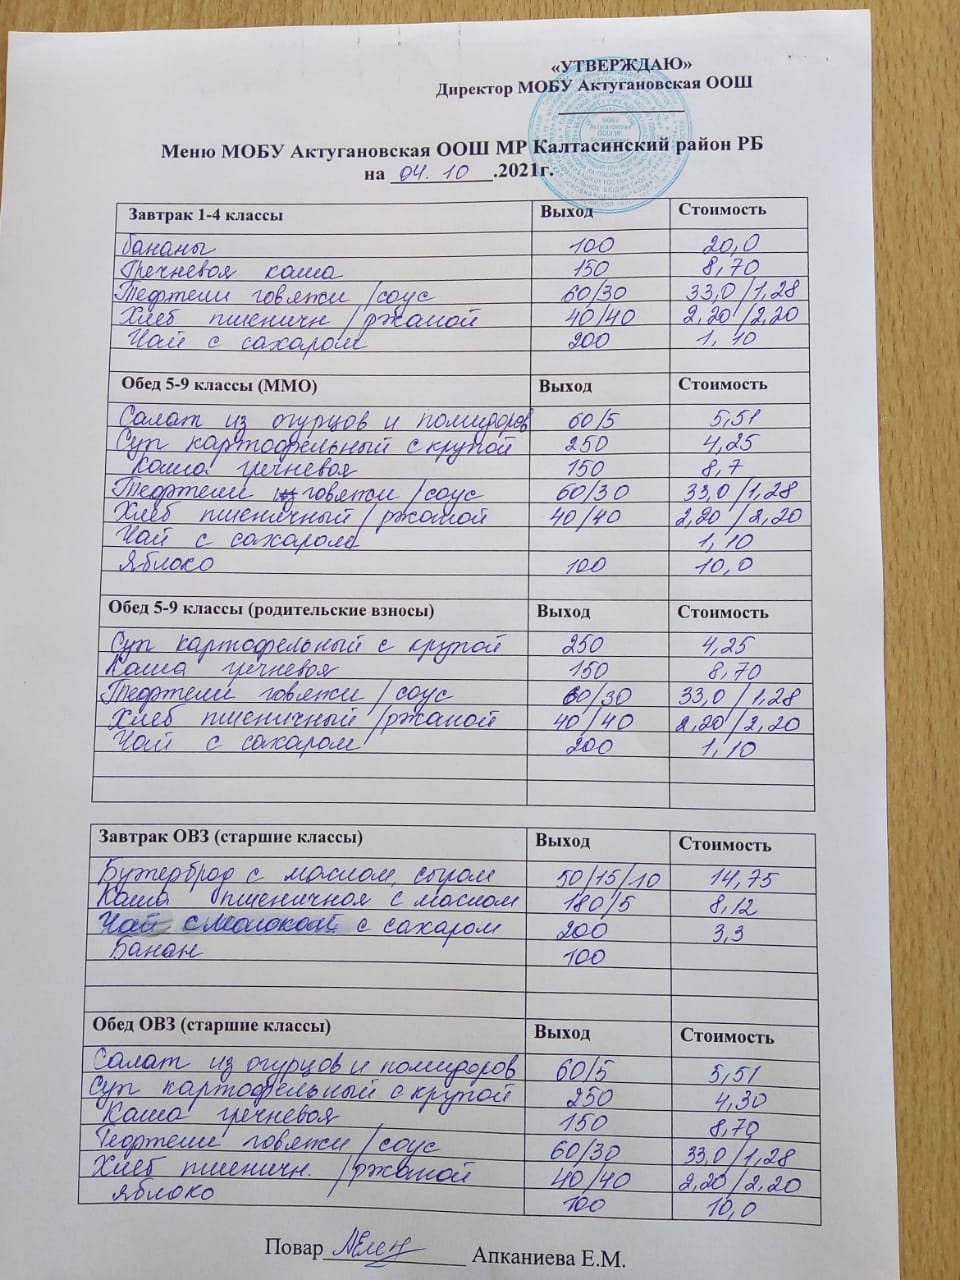 «УТВЕРЖДАЮ»
Директор МОБУ Актугановская ООШ
Меню МОБУ Актугановская ООШ МР Калтасинский район РБ
на 04.10.2021г.
Завтрак 1-4 классы Выход Стоимость
бананы 100 20,0
Гречневая каша 150 8,70
Тефтели говяжи /соус 60/30 33,0/1,28
Хлеб пшеничн /ржаной 40/40 2,20/2,20
Чай с сахаром 200 1,10
Обед 5-9 классы (ММО) Выход Стоимость
Салат из огурцов и помидоров 60/5 5,51
Суп картофельный с крупой 250 4,25
Каша гречневая 150 8,7
Тефтели говяжи /соус 60/30 33,0/1,28
Хлеб пшеничный /ржаной 40/40 2,20/2,20
Чай с сахаром 1,10
Яблоко 100 10,0
Обед 5-9 классы (родительские взносы) Выход Стоимость
Суп картофельный с крупой 250 4,25
Каша гречневая 150 8,70
Тефтели говяжи /соус 60/30 33,0/1,28
Хлеб пшеничный /ржаной 40/40 2,20/2,20
Чай с сахаром 200 1,10
Завтрак ОВЗ (старшие классы) Выход Стоимость
Бутерброд с маслом, сыром 50/15/10 14,75
Каша пшеничная с маслом 180/5 8,12
Чай с молоком с сахаром 200 3,3
Банан 100
Обед ОВЗ (старшие классы) Выход Стоимость
Салат из огурцов и помидоров 60/5 5,51
Суп картофельный с крупой 250 4,30
Каша гречневая 150 8,70
Тефтели говяжи /соус 60/30 33,0/1,28
Хлеб пшеничн. /ржаной 40/40 2,20/2,20
Яблоко 100 10,0
Повар Апканиева Е.М.